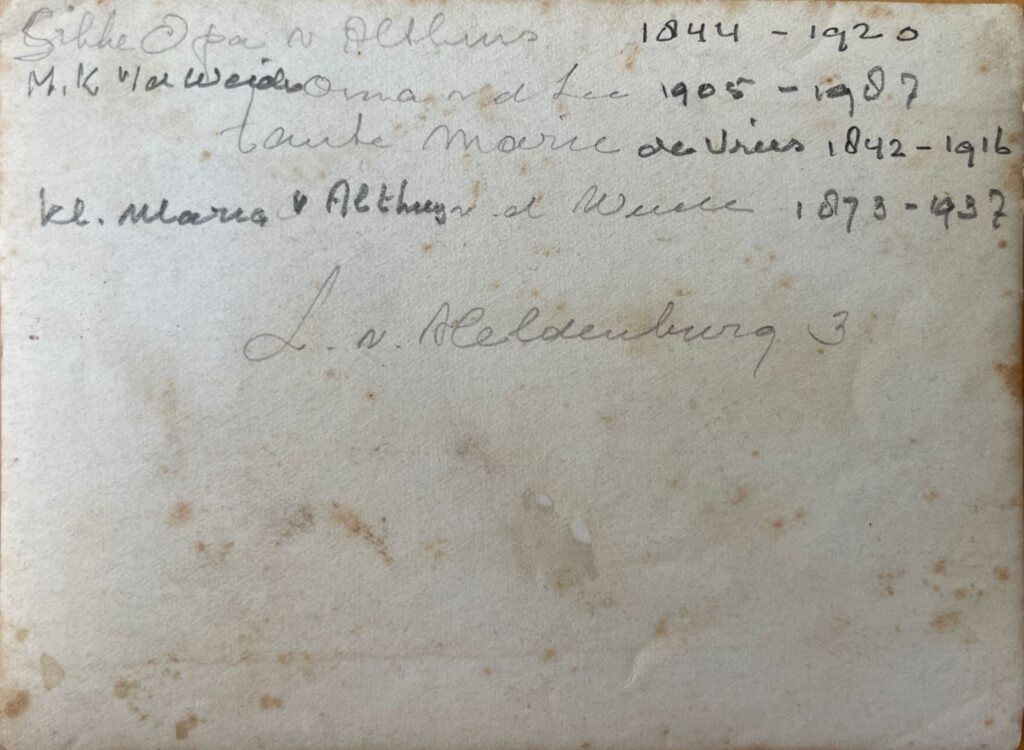 Sikke Opa v Althuis 1844 - 1920
M.K v/d Weide Oma v d Lee 1905 - 1987
tante Marie de Vries 1842 - 1916
kl. Maria v Althuys v d Weide 1873 - 1937
L. v. Aeldenburg 3